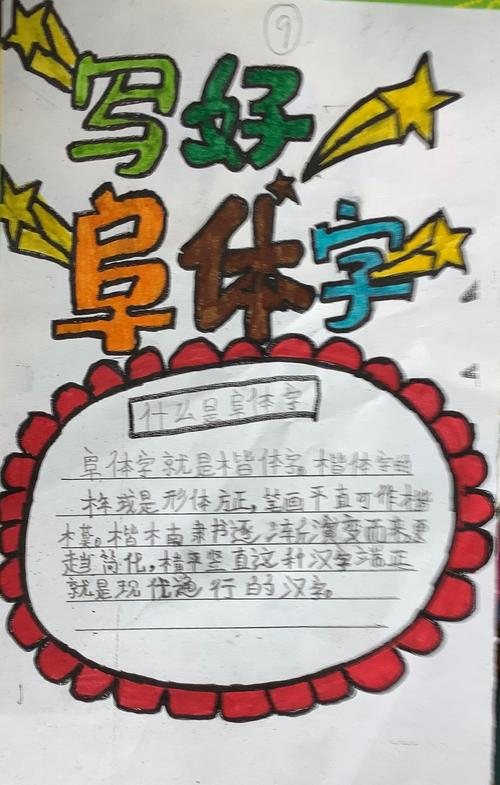 9
写好
阜体字
什么是阜体字
阜体字就是楷体字。楷体字
是形体方正,笔画平直可作楷
模。楷木由隶书逐渐演变而来更
趋简化,楷平竖直这种汉字端正
就是现代通行的汉字。